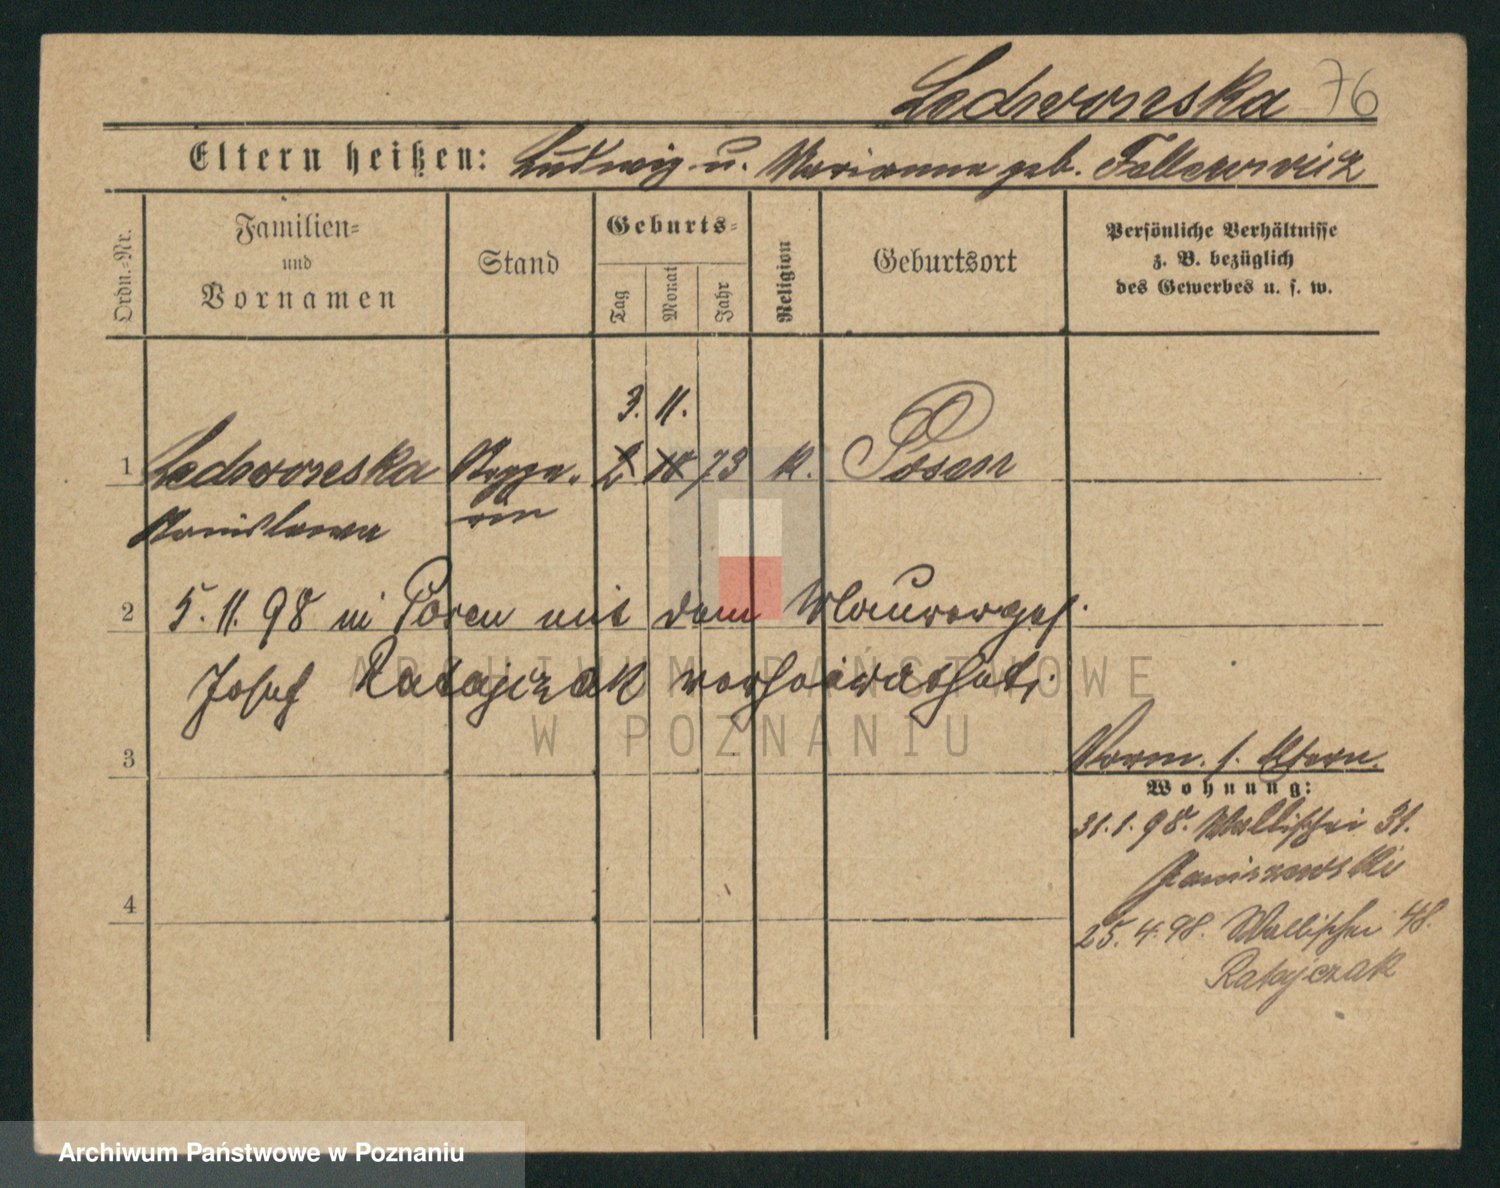 Ledworeska 76
Eltern heißen: Ludwig u. Marianna geb. Fellerowicz
Ordn.-Nr.
Familien-
und
Vornamen
Stand
Geburts-
Tag
Monat
Jahr
Religion
Geburtsort
Persönliche Verhältnisse
z. B. bezüglich
des Gewerbes u. s. w.
3. 11.
1 Ledworeska 2 10 73 k. Posen
Stanislawa rin
2 5.11.98 in Posen mit dem Maurerges.
Josef Ratajczak verheirathet.
3 Vorm. s. Eltern.
Wohnung:
31.1.98. Wallischei 31.
Janiszewski
4 25.4.98. Wallischei 48.
Ratajczak
ARCHIWUM PAŃSTWOWE
W POZNANIU
Archiwum Państwowe w Poznaniu